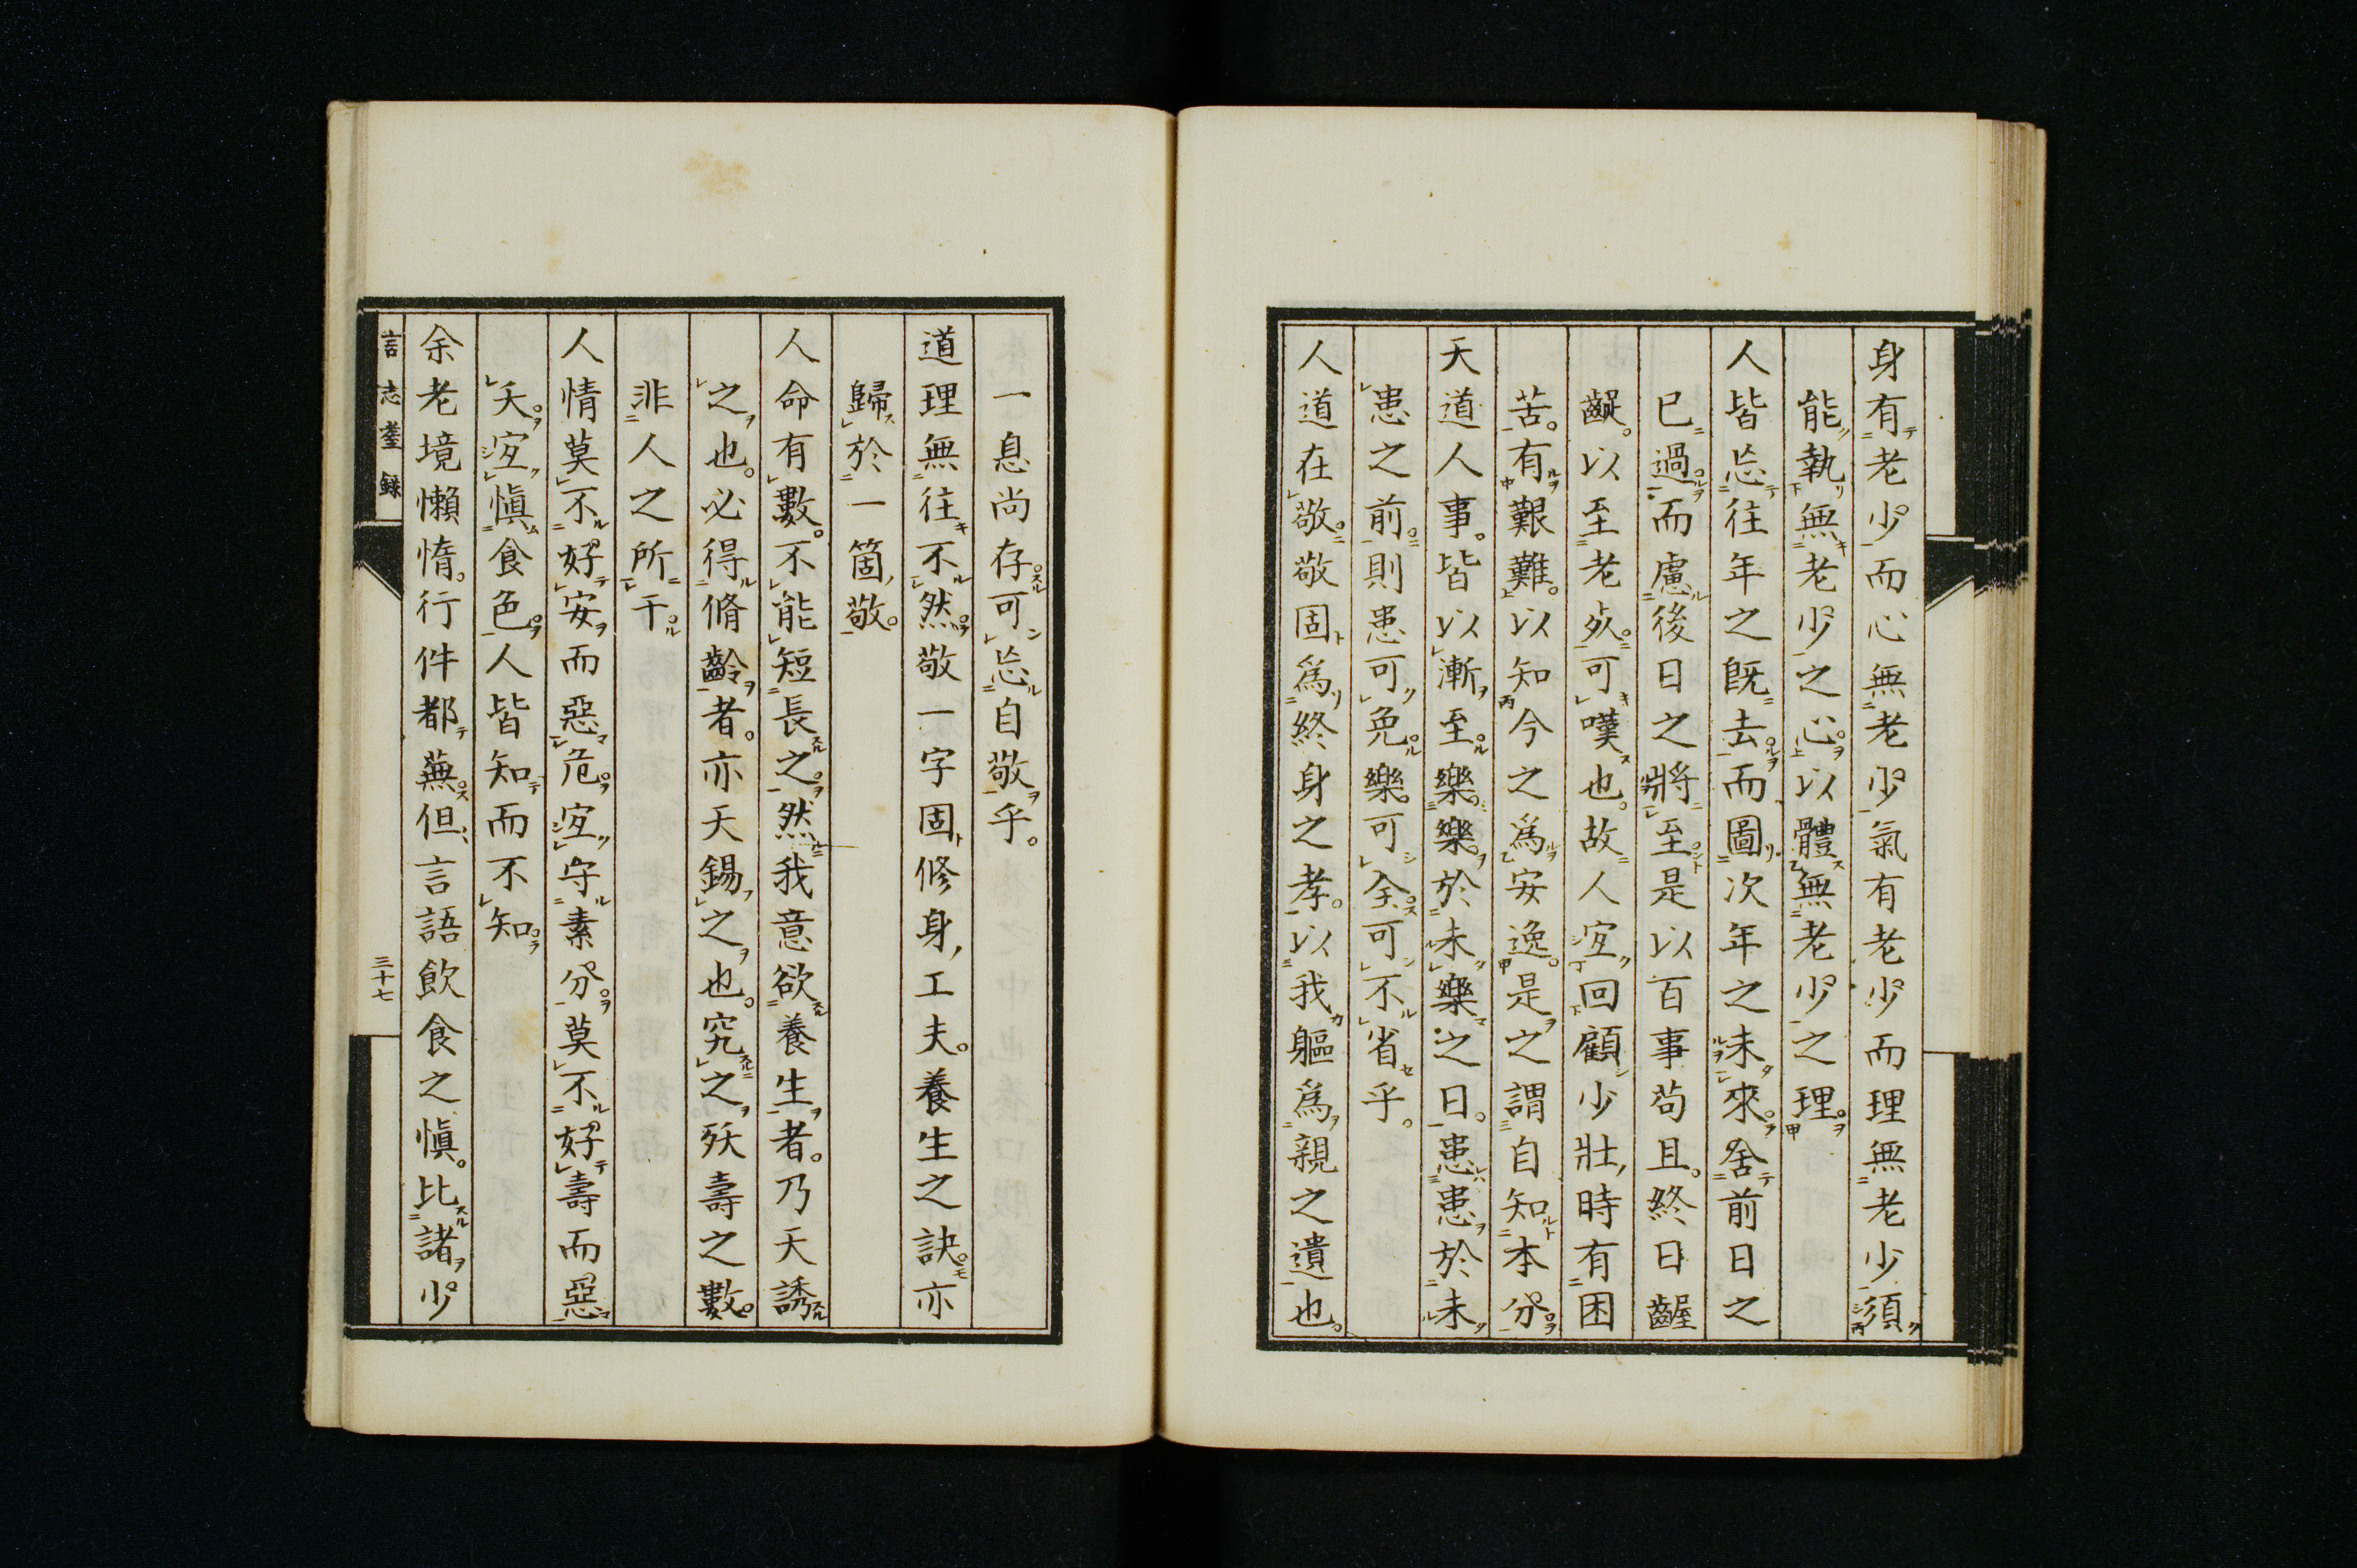 身有老少而心無老少氣有老少而理無老少須
能執無老少之心以體無老少之理
人皆忘往年之既去而圖次年之未來舍前日之
已過而慮後日之將至是以百事苟且終日齷
齪以至老死可嘆也故人宜回顧少壯時有困
苦有艱難以知今之爲安逸是之謂自知本分
天道人事皆以漸至樂樂於未樂之日患患於未
患之前則患可免樂可全可不省乎
人道在敬敬固爲終身之孝以我軀爲親之遺也
一息尚存可忘自敬乎
道理無往不然敬一字固修身工夫養生之訣亦
歸於一箇敬
人命有數不能短長之然我意欲養生者乃天誘
之也必得脩齡者亦天錫之也究之殀壽之數
非人之所干
人情莫不好安而惡危宜守素分莫不好壽而惡
夭宜愼食色人皆知而不知
余老境懶惰行件都蕪但言語飲食之愼比諸少
言志耋録
三十七